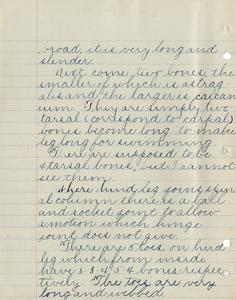 broad, it is very long and
slender.
Next come two bones the
smaller of which is astrag
alis and the larger is calcan
eum. They are simply two
tarsal (correspond to carpal)
bones become long to make
leg long for swimming.
There are supposed to be
4 tarsal bones, but I cannot
see them.
Where hind leg joins spin
al column there is a ball
and socket joint to allow
a motion which hinge
joint does not give
There are 5 toes on hind
leg which from inside
have 3-3-4-5-4 bones respec
tively. The toes are very
long and webbed